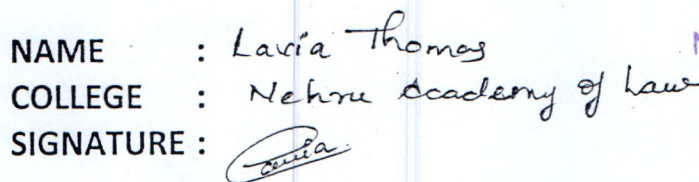 NAME : Lavia Thomas
COLLEGE : Nehru Academy of Law
SIGNATURE : Lavia